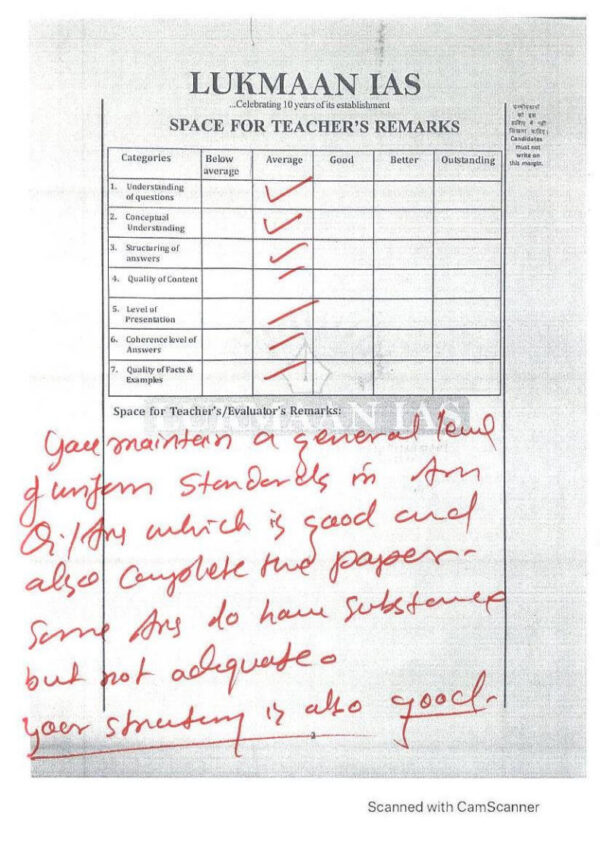 LUKMAAN IAS
...Celebrating 10 years of its establishment
SPACE FOR TEACHER'S REMARKS
उम्मीदवारों
को इस
हाशिए में नहीं
लिखना चाहिए।
Candidates
must not
write on
this margin.
Categories Below average Average Good Better Outstanding
1. Understanding of questions
2. Conceptual Understanding
3. Structuring of answers
4. Quality of Content
5. Level of Presentation
6. Coherence level of Answers
7. Quality of Facts & Examples
LUKMAAN IAS
Space for Teacher's/Evaluator's Remarks:
You maintain a general level
of uniform standards in
which is good and
also complete the paper.
Some Ans do have substance
but not adequate.
your structuring is also good.
2
Scanned with CamScanner